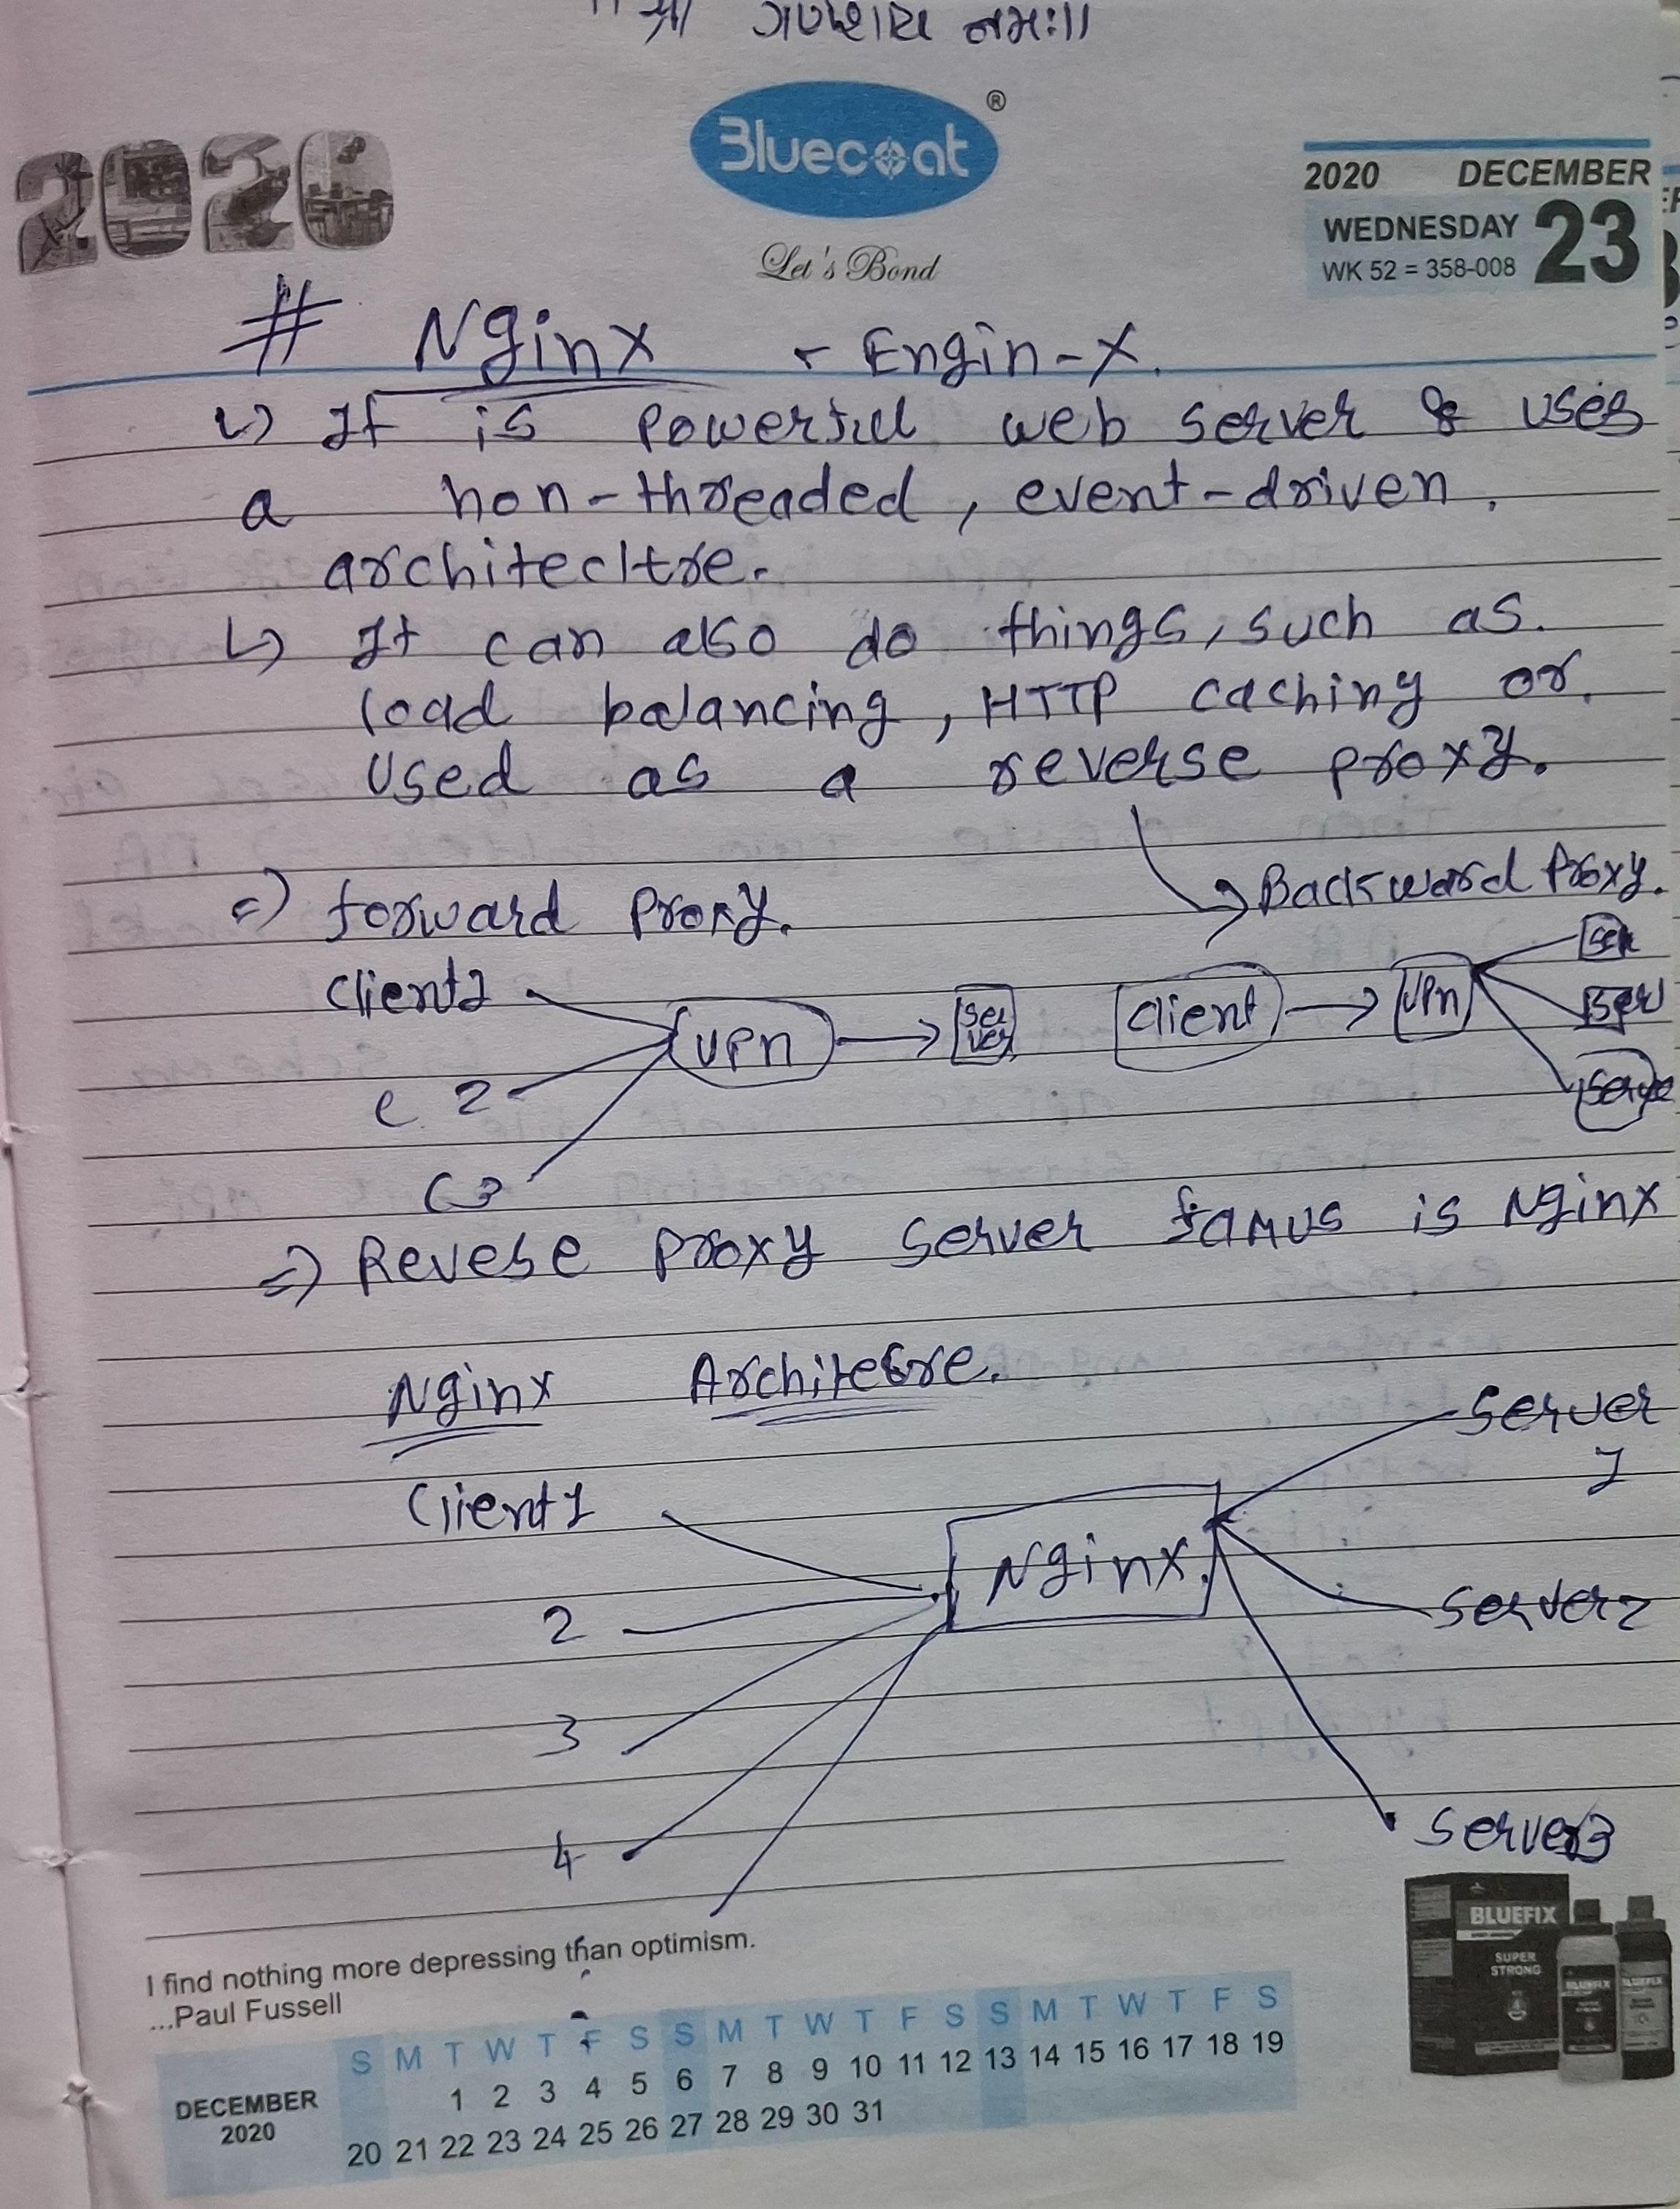 ॥ श्री ગણેશાય નમઃ॥
2020
Bluecoat ®
Let's Bond
2020 DECEMBER
WEDNESDAY 23
WK 52 = 358-008
# Nginx - Engin-X.
↳ It is powerfull web server & uses
a non-threaded, event-driven.
architecltre.
↳ It can also do things, such as.
load balancing, HTTP caching or.
used as a reverse proxy.
⇒ forward proxy.
→ Backward Proxy.
Client1
VPN → Server
Client → VPN
Ser
Ser
Server
C 2
C3
⇒ Revese proxy server famus is Nginx
Nginx Architectre.
Client1
2
3
4
Nginx.
Server
1
Server2
Server3
I find nothing more depressing than optimism.
...Paul Fussell
BLUEFIX
SUPER
STRONG
BLUEFIX
BLUEFIX
DECEMBER
2020
S M T W T F S S M T W T F S S M T W T F S
1 2 3 4 5 6 7 8 9 10 11 12 13 14 15 16 17 18 19
20 21 22 23 24 25 26 27 28 29 30 31